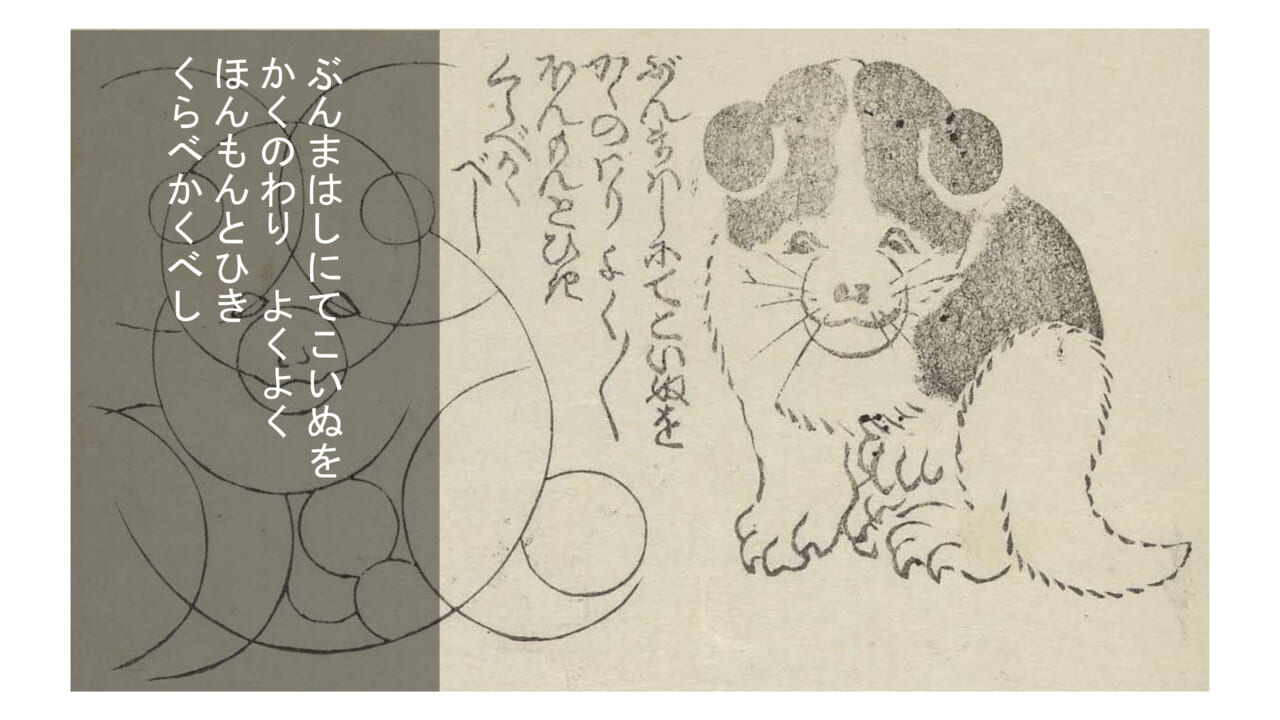 ぶんまはしにてこいぬを
かくのわり よくよく
ほんもんとひき
くらべかくべし
ぶんまわしにてこいぬを
かくのわりよく〱
ほんもんとひき
くらべかく
べし